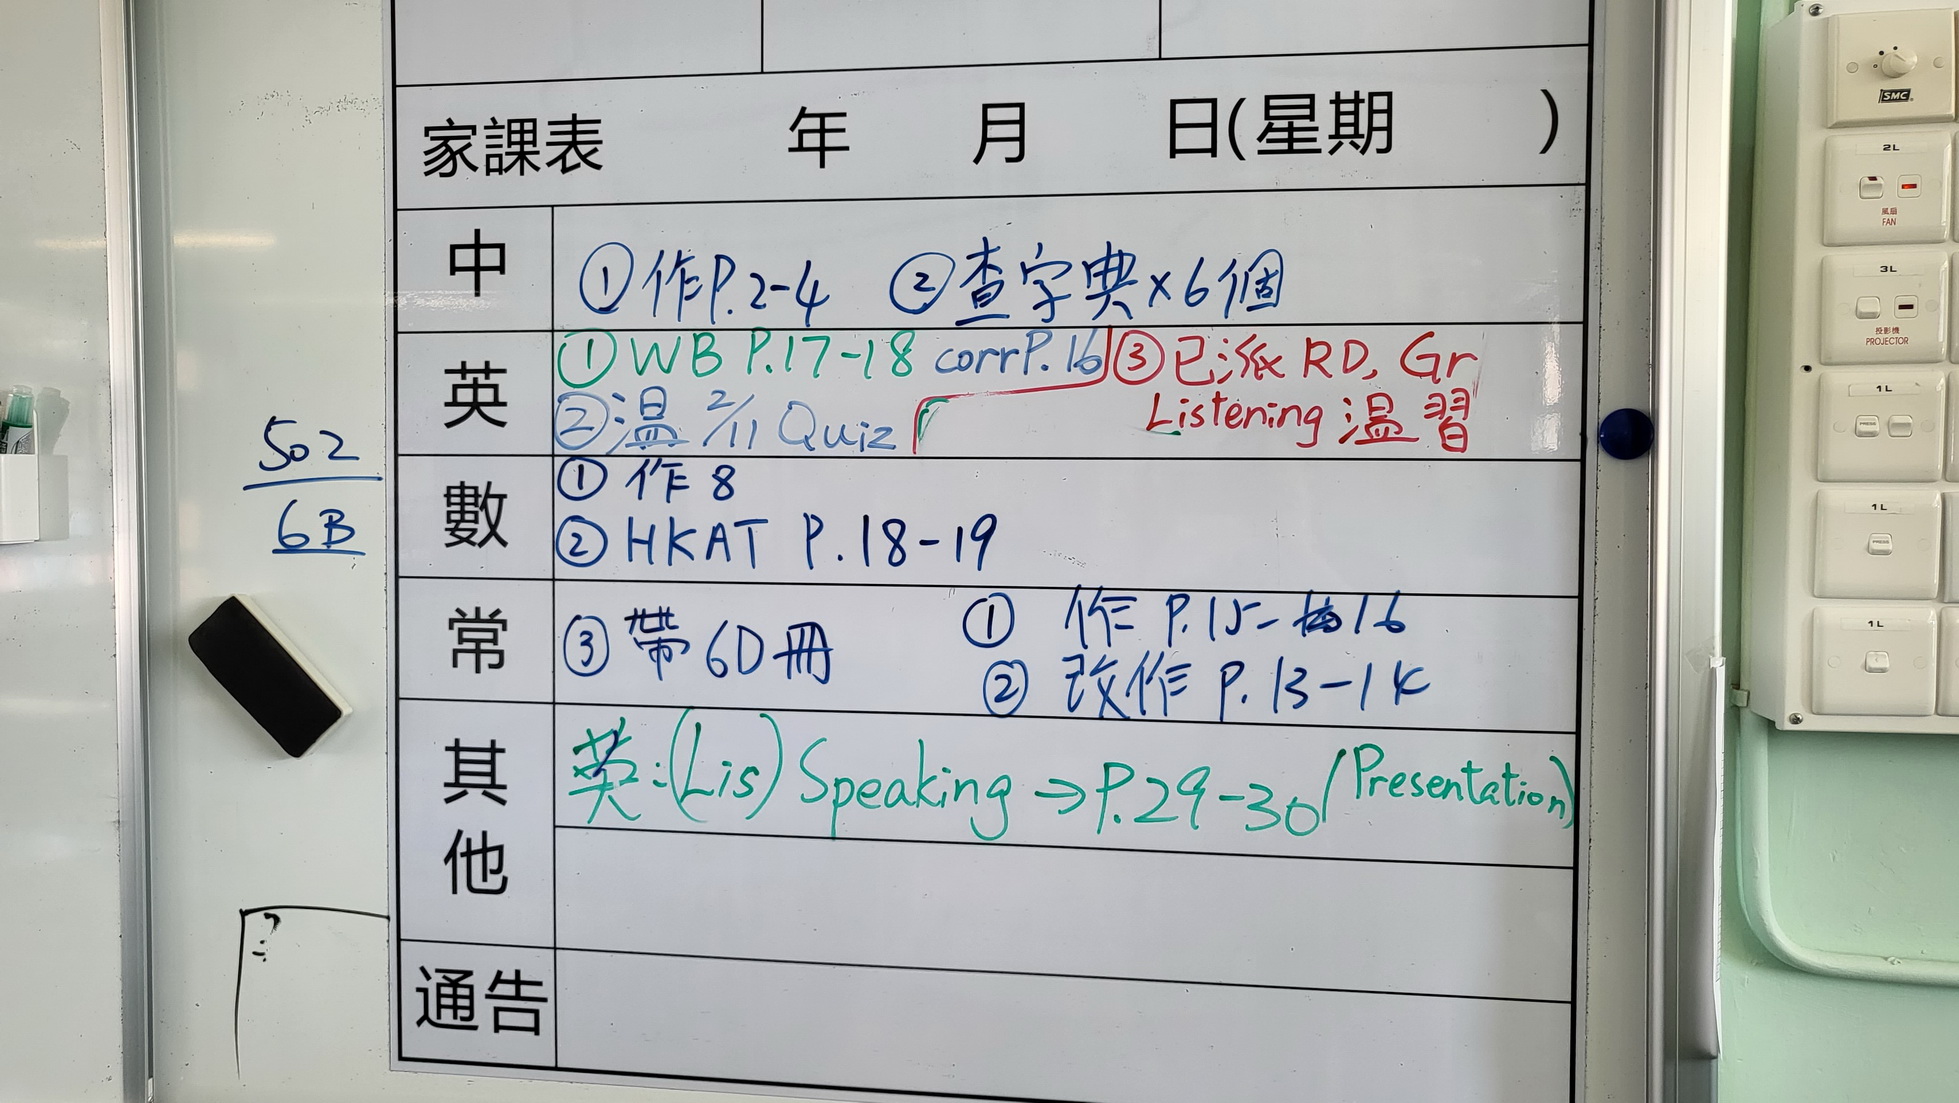 家課表 年 月 日(星期 )
中 ①作P.2-4 ②查字典×6個
英 ①WB P.17-18 corrP.16 ③已派 RD, Gr
②溫 2/11 Quiz Listening 溫習
數 ①作8
②HKAT P.18-19
常 ③帶6D冊 ① 作 P.15-16
② 改作 P.13-14
其他 英:(Lis) Speaking → P.29-30 (Presentation)
通告
502
6B
?
÷
SMC
2L
風扇
FAN
3L
投影機
PROJECTOR
1L
PRESS
1L
PRESS
1L